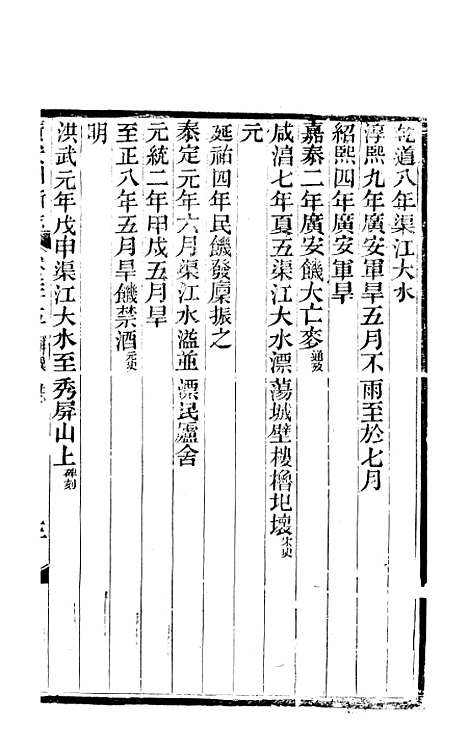 乾道八年渠江大水
淳熙九年廣安軍旱五月不雨至於七月
紹熙四年廣安軍旱
嘉泰二年廣安饑大亡麥通攷
咸淳七年夏五渠江大水漂蕩城壁樓櫓圮壞宋史
元
延祐四年民饑發廩振之
泰定元年六月渠江水溢並漂民廬舍
元統二年甲戍五月旱
至正八年五月旱饑禁酒元史
明
洪武元年戊申渠江大水至秀屏山上碑刻